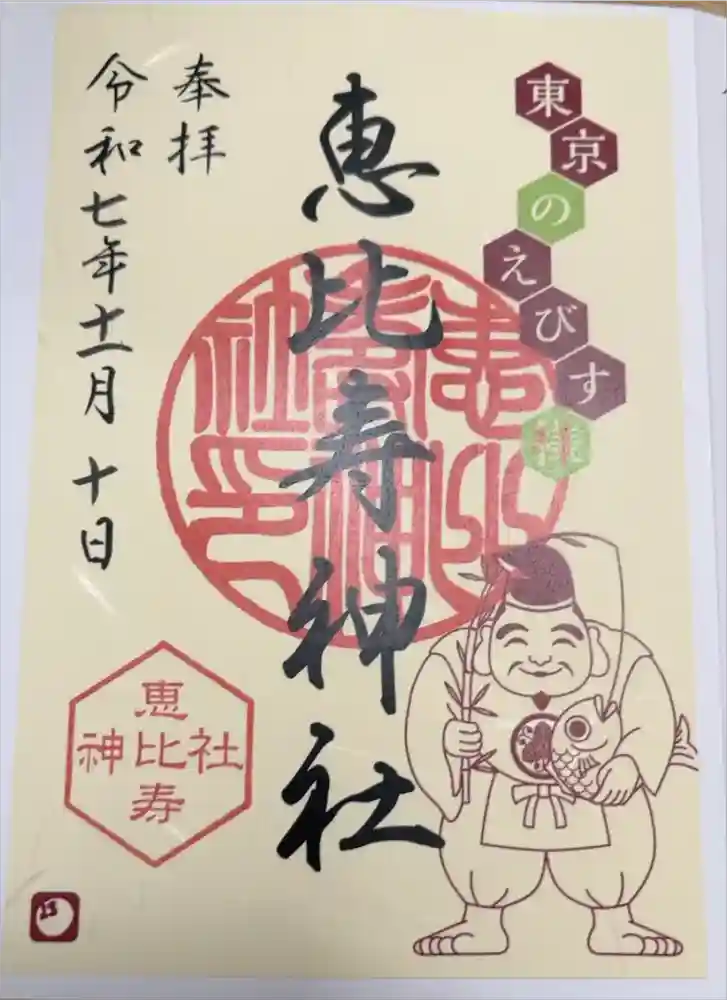 東京のえびす様
恵比寿神社
奉拝
令和七年十一月十日
恵
神比社
寿